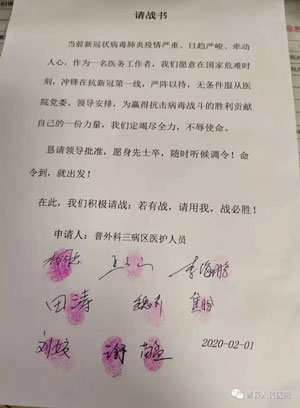 请战书
当前新冠状病毒肺炎疫情严重、日趋严峻、牵动
人心、作为一名医务工作者，我们愿意在国家危难时
刻，冲锋在抗新冠第一线，严阵以待，无条件服从医
院党委、领导安排，为赢得抗击病毒战斗的胜利贡献
自己的一份力量，我们定竭尽全力，不辱使命。
恳请领导批准，愿身先士卒，随时听候调令！命
令到，就出发！
在此，我们积极请战：若有战，请用我，战必胜！
申请人：普外科三病区医护人员
田涛
2020-02-01
人民医院